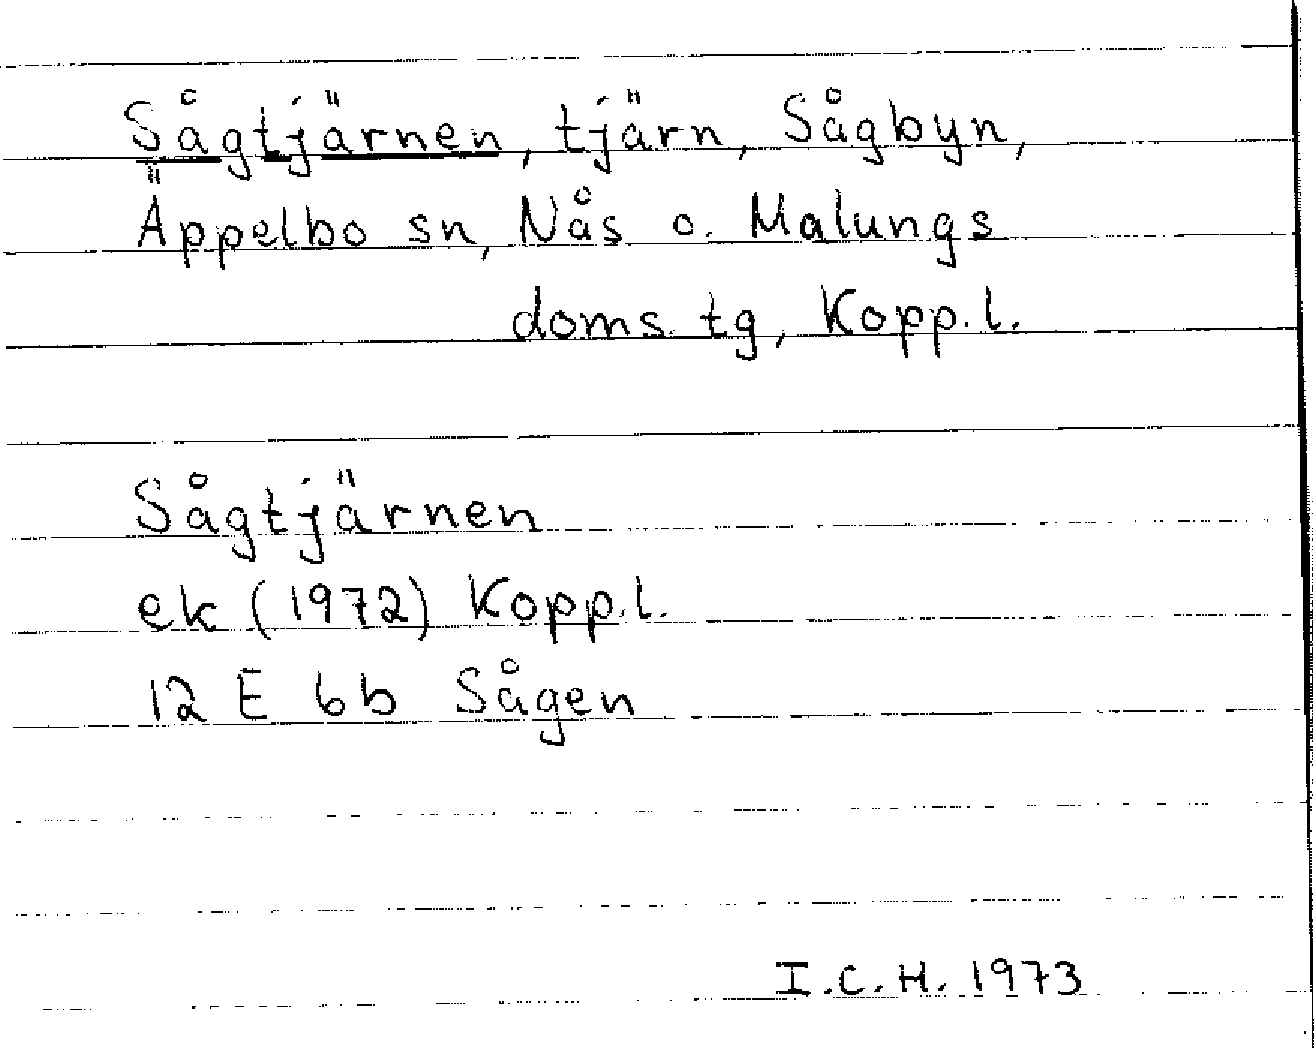 Sågtjärnen, tjärn, Sågbyn,
Äppelbo sn, Nås o. Malungs
doms. tg, Kopp. l.
Sågtjärnen
ek (1972) Kopp. l.
12 E 6b Sågen
I.C.H. 1973